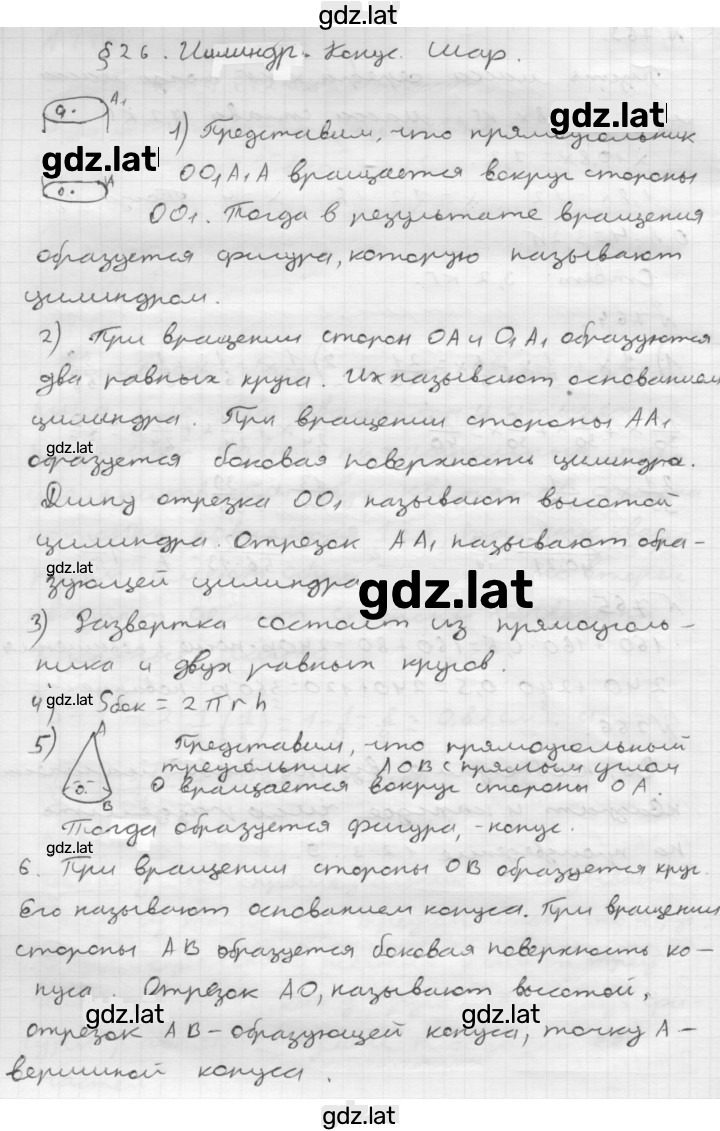 gdz.lat
§ 26. Цилиндр. Конус. Шар.
A1
O.
gdz.lat
1) Представим, что прямоугольник
gdz.lat
OO1A1A вращается вокруг стороны
O. A
OO1. Тогда в результате вращения
образуется фигура, которую называют
цилиндром.
2) При вращении сторон OA и O1A1 образуются
два равных круга. Их называют основанием
цилиндра. При вращении стороны AA1
gdz.lat
образуется боковая поверхности цилиндра.
Длину отрезка OO1 называют высотой
цилиндра. Отрезок AA1 называют обра-
gdz.lat
зующей цилиндра
gdz.lat
3) Развертка состоит из прямоуголь-
ника и двух равных кругов.
4) Sбок = 2πrh
gdz.lat
5) A
O
B
Представим, что прямоугольный
треугольник AOB с прямым углом
O вращается вокруг стороны OA.
Тогда образуется фигура, - конус.
gdz.lat
6. При вращении стороны OB образуется круг.
Его называют основанием конуса. При вращении
стороны AB образуется боковая поверхность ко-
нуса. Отрезок AO, называют высотой,
gdz.lat
gdz.lat
отрезок AB - образующей конуса, точку A -
вершиной конуса.
gdz.lat